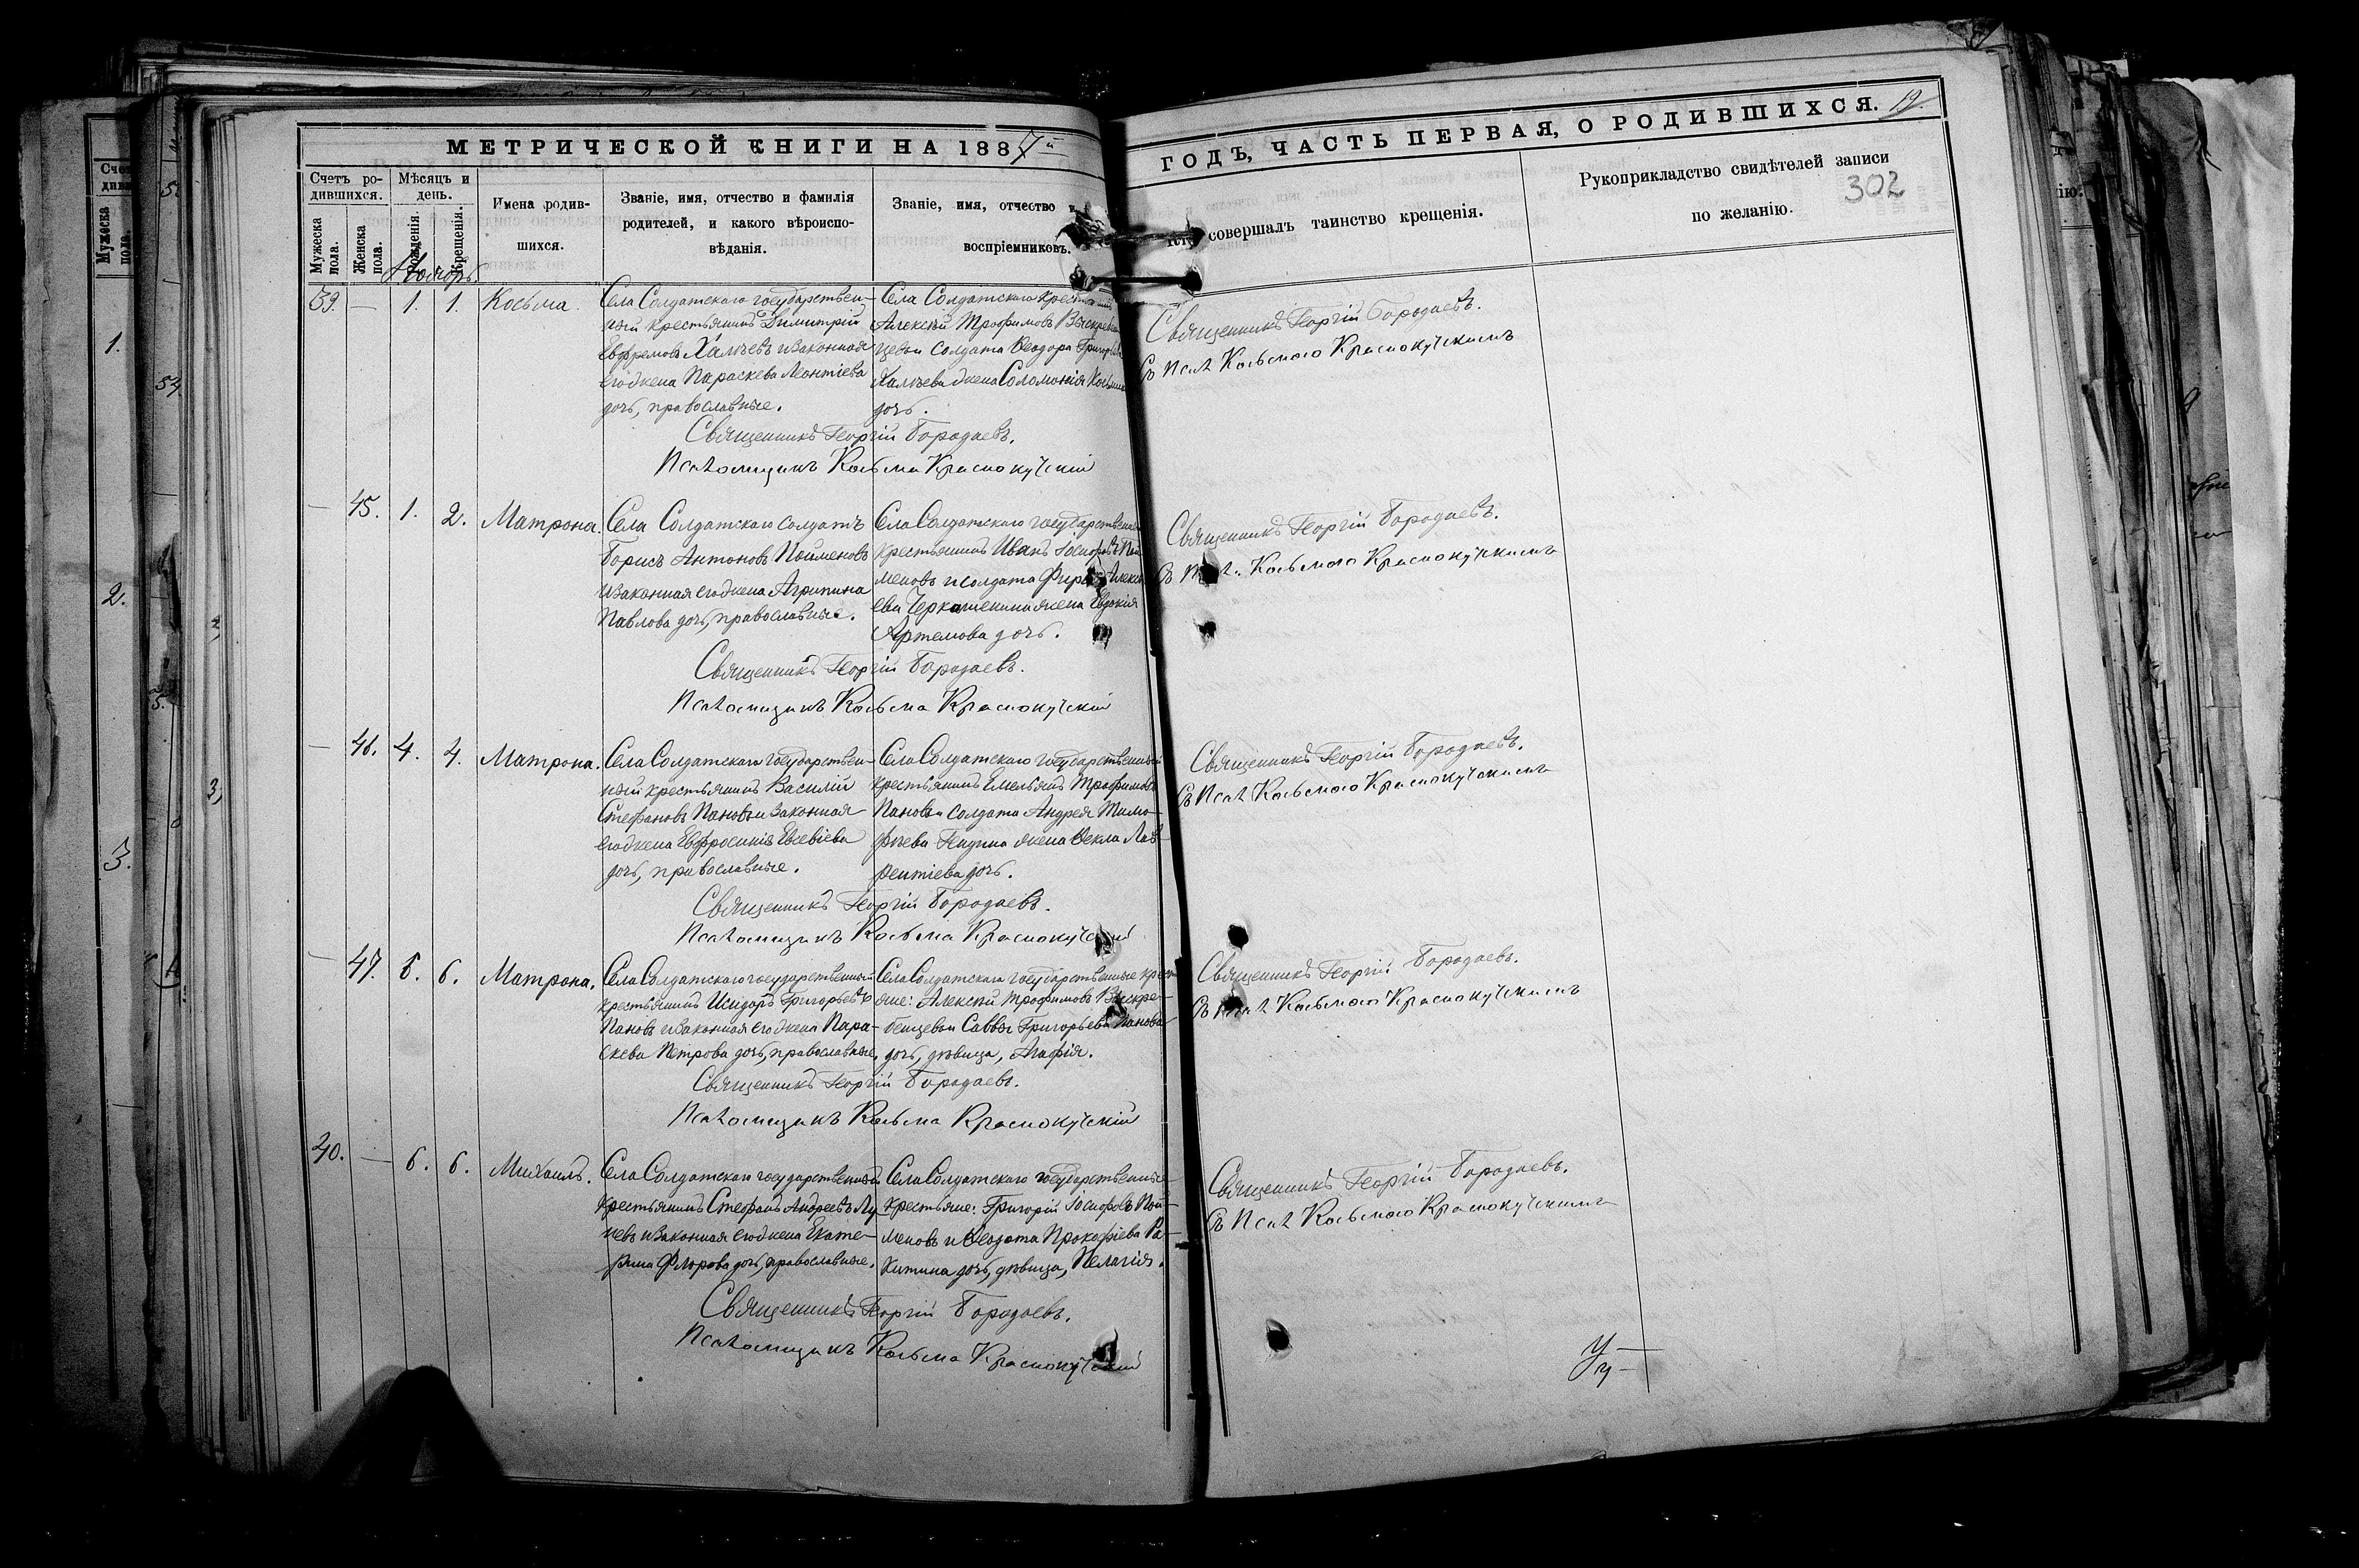 МЕТРИЧЕСКОЙ КНИГИ НА 1887й
ГОДЪ, ЧАСТЬ ПЕРВАЯ, О РОДИВШИХСЯ. 19.
302
Счетъ родившихся.
Мужеска пола.
Женска пола.
Мѣсяцъ и день.
Рожденія.
Крещенія.
Имена родившихся.
Званіе, имя, отчество и фамилія
родителей, и какого вѣроиспо-
вѣданія.
Званіе, имя, отчество и
воспріемниковъ.
совершалъ таинство крещенія.
Рукоприкладство свидѣтелей записи
по желанію.
Ноябрь
39. — 1. 1. Косьма.
Села Солдатскаго государствен-
ный крестьянинъ Димитрій
Евфремовъ Халчевъ и законная
его жена Параскева Леонтіева
дочь, православные.
Села Солдатскаго
Алексѣй Трофимовъ
солдата Ѳеодора
Халчева жена Соломонія
дочь.
Священникъ Георгій Бородаевъ.
Псаломщикъ Косьма Краснокутскій
Священникъ Георгій Бородаевъ.
Съ Псал Косьмою Краснокутскимъ
— 45. 1. 2. Матрона.
Села Солдатскаго солдатъ
Борисъ Антоновъ Пойменовъ
и законная его жена Агрипина
Павлова дочь, православные.
Села Солдатскаго
крестьянинъ Иванъ Іосифовъ Пой-
меновъ и солдата
жена Евдокія
Артемова дочь.
Священникъ Георгій Бородаевъ.
Псаломщикъ Косьма Краснокутскій
Священникъ Георгій Бородаевъ.
Косьмою Краснокутскимъ
— 46. 4. 4. Матрона.
Села Солдатскаго государствен-
ный крестьянинъ Василій
Стефановъ Пановъ и законная
его жена Евфросинія Евсевіева
дочь, православные.
Села Солдатскаго государственный
крестьянинъ Емельянъ Трофимовъ
Пановъ и солдата Андрея Тимо-
фѣева жена Ѳекла Лав-
рентіева дочь.
Священникъ Георгій Бородаевъ.
Псаломщикъ Косьма Краснокутскій
Священникъ Георгій Бородаевъ.
Съ Псал Косьмою Краснокутскимъ
— 47. 5. 6. Матрона.
Села Солдатскаго государственный
крестьянинъ Исидоръ Григорьевъ
Пановъ и законная его жена Пара-
скева Петрова дочь, православные.
Села Солдатскаго государственные
яне: Алексѣй Трофимовъ Выскре-
бенцевъ и Саввы Григорьева Панова
дочь, дѣвица, Агафія.
Священникъ Георгій Бородаевъ.
Псаломщикъ Косьма Краснокутскій
Священникъ Георгій Бородаевъ.
Съ Псал Косьмою Краснокутскимъ
40. — 6. 6. Михаилъ.
Села Солдатскаго государственный
крестьянинъ Стефанъ Андреевъ Лу-
невъ и законная его жена Екате-
рина Флорова дочь, православные.
Села Солдатскаго государственные
крестьяне: Григорій Іосифовъ Пой-
меновъ и Ѳеодота Прокофіева Ра-
китина дочь, дѣвица, Пелагія.
Священникъ Георгій Бородаевъ.
Псаломщикъ Косьма Краснокутскій
Священникъ Георгій Бородаевъ.
Съ Псал Косьмою Краснокутскимъ
1.
2.
3.